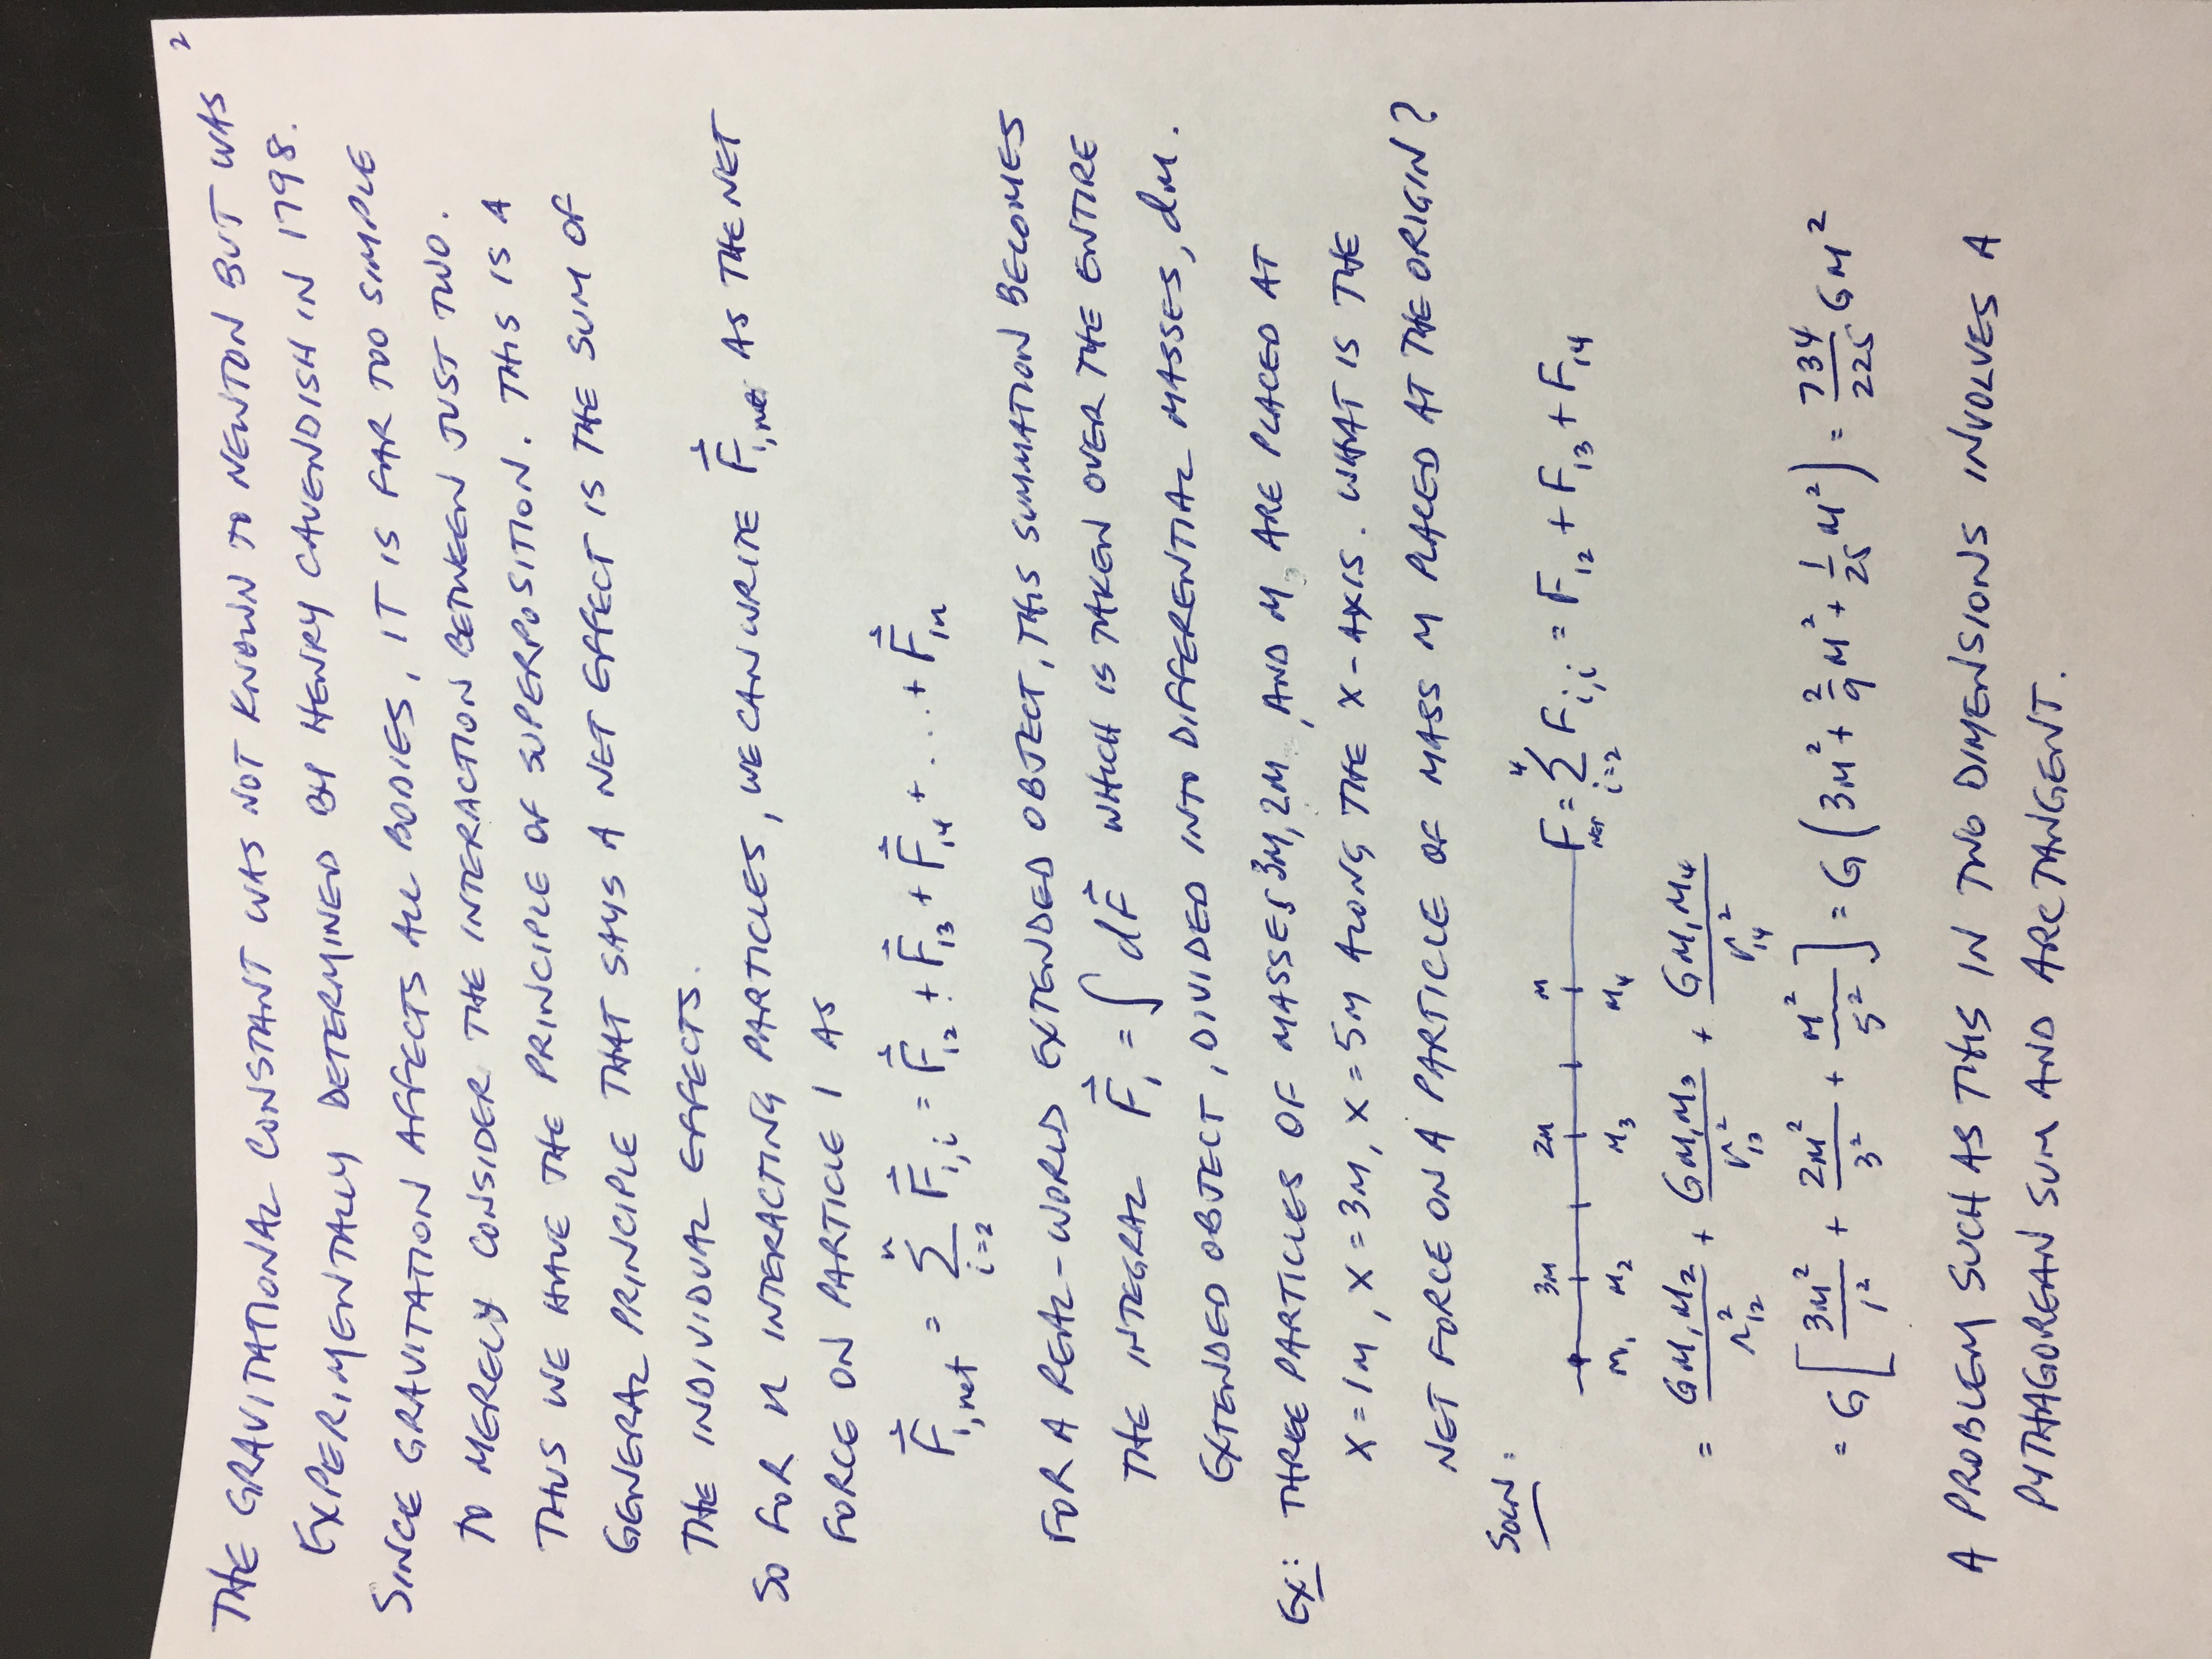 2
THE GRAVITATIONAL CONSTANT WAS NOT KNOWN TO NEWTON BUT WAS
EXPERIMENTALLY DETERMINED BY HENRY CAVENDISH IN 1798.
SINCE GRAVITATION AFFECTS ALL BODIES, IT IS FAR TOO SIMPLE
TO MERELY CONSIDER THE INTERACTION BETWEEN JUST TWO.
THUS WE HAVE THE PRINCIPLE OF SUPERPOSITION. THIS IS A
GENERAL PRINCIPLE THAT SAYS A NET EFFECT IS THE SUM OF
THE INDIVIDUAL EFFECTS.
SO FOR n INTERACTING PARTICLES, WE CAN WRITE F⃗₁,net AS THE NET
FORCE ON PARTICLE 1 AS
F⃗₁,net = Σ_{i=2}^{n} F⃗₁,i = F⃗₁₂ + F⃗₁₃ + F⃗₁₄ + ... + F⃗₁n
FOR A REAL-WORLD EXTENDED OBJECT, THIS SUMMATION BECOMES
THE INTEGRAL F⃗₁ = ∫ dF⃗ WHICH IS TAKEN OVER THE ENTIRE
EXTENDED OBJECT, DIVIDED INTO DIFFERENTIAL MASSES, dm.
EX: THREE PARTICLES OF MASSES 3M, 2M, AND M, ARE PLACED AT
X=1M, X=3M, X=5M ALONG THE X-AXIS. WHAT IS THE
NET FORCE ON A PARTICLE OF MASS M PLACED AT THE ORIGIN?
SOLN:
3M 2M M
M₁ M₂ M₃ M₄
F_NET = Σ_{i=2}^{4} F_{i,i} = F₁₂ + F₁₃ + F₁₄
= GM₁M₂/r₁₂² + GM₁M₃/r₁₃² + GM₁M₄/r₁₄²
= G[3M²/1² + 2M²/3² + M²/5²] = G(3M² + 2/9 M² + 1/25 M²) = 734/225 GM²
A PROBLEM SUCH AS THIS IN TWO DIMENSIONS INVOLVES A
PYTHAGOREAN SUM AND ARCTANGENT.